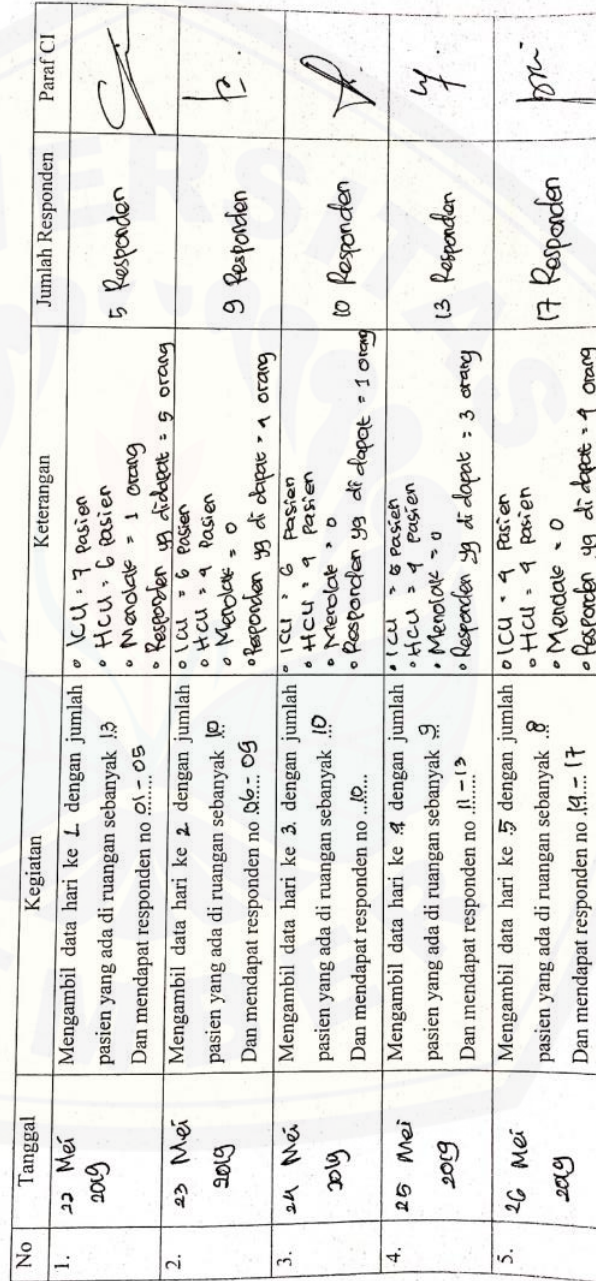 No Tanggal Kegiatan Keterangan Jumlah Responden Paraf CI
1.
22 Mei
2019
Mengambil data hari ke 1 dengan jumlah
pasien yang ada di ruangan sebanyak 13
Dan mendapat responden no 01 - 05
• ICU = 7 Pasien
• HCU = 6 Pasien
• Menolak = 1 orang
• Responden yg didapat = 5 orang
5 Responden
2.
23 Mei
2019
Mengambil data hari ke 2 dengan jumlah
pasien yang ada di ruangan sebanyak 10
Dan mendapat responden no 06 - 09
• ICU = 6 Pasien
• HCU = 4 Pasien
• Menolak = 0
• Responden yg di dapat = 4 orang
9 Responden
3.
24 Mei
2019
Mengambil data hari ke 3. dengan jumlah
pasien yang ada di ruangan sebanyak 10
Dan mendapat responden no 10
• ICU = 6 Pasien
• HCU = 4 Pasien
• Menolak = 0
• Responden yg di dapat = 1 orang
10 Responden
4.
25 Mei
2019
Mengambil data hari ke 4 dengan jumlah
pasien yang ada di ruangan sebanyak 9
Dan mendapat responden no 11 - 13
• ICU = 5 Pasien
• HCU = 4 Pasien
• Menolak = 0
• Responden yg di dapat = 3 orang
13 Responden
5.
26 Mei
2019
Mengambil data hari ke 5 dengan jumlah
pasien yang ada di ruangan sebanyak 8
Dan mendapat responden no 14 - 17
• ICU = 4 Pasien
• HCU = 4 Pasien
• Menolak = 0
• Responden yg di dapat = 4 orang
17 Responden